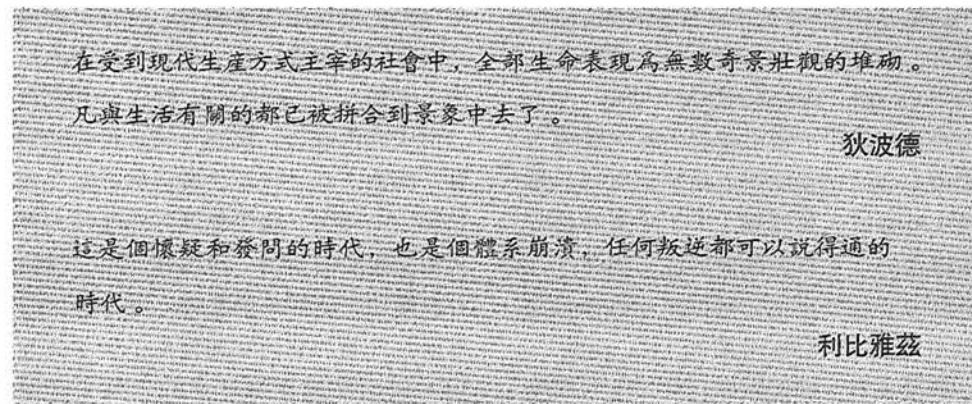 在受到現代生産方式主宰的社會中，全部生命表現爲無數奇景壯觀的堆砌。
凡與生活有關的都已被拼合到景象中去了。
狄波德
這是個懷疑和發問的時代，也是個體系崩潰，任何叛逆都可以説得通的
時代。
利比雅茲